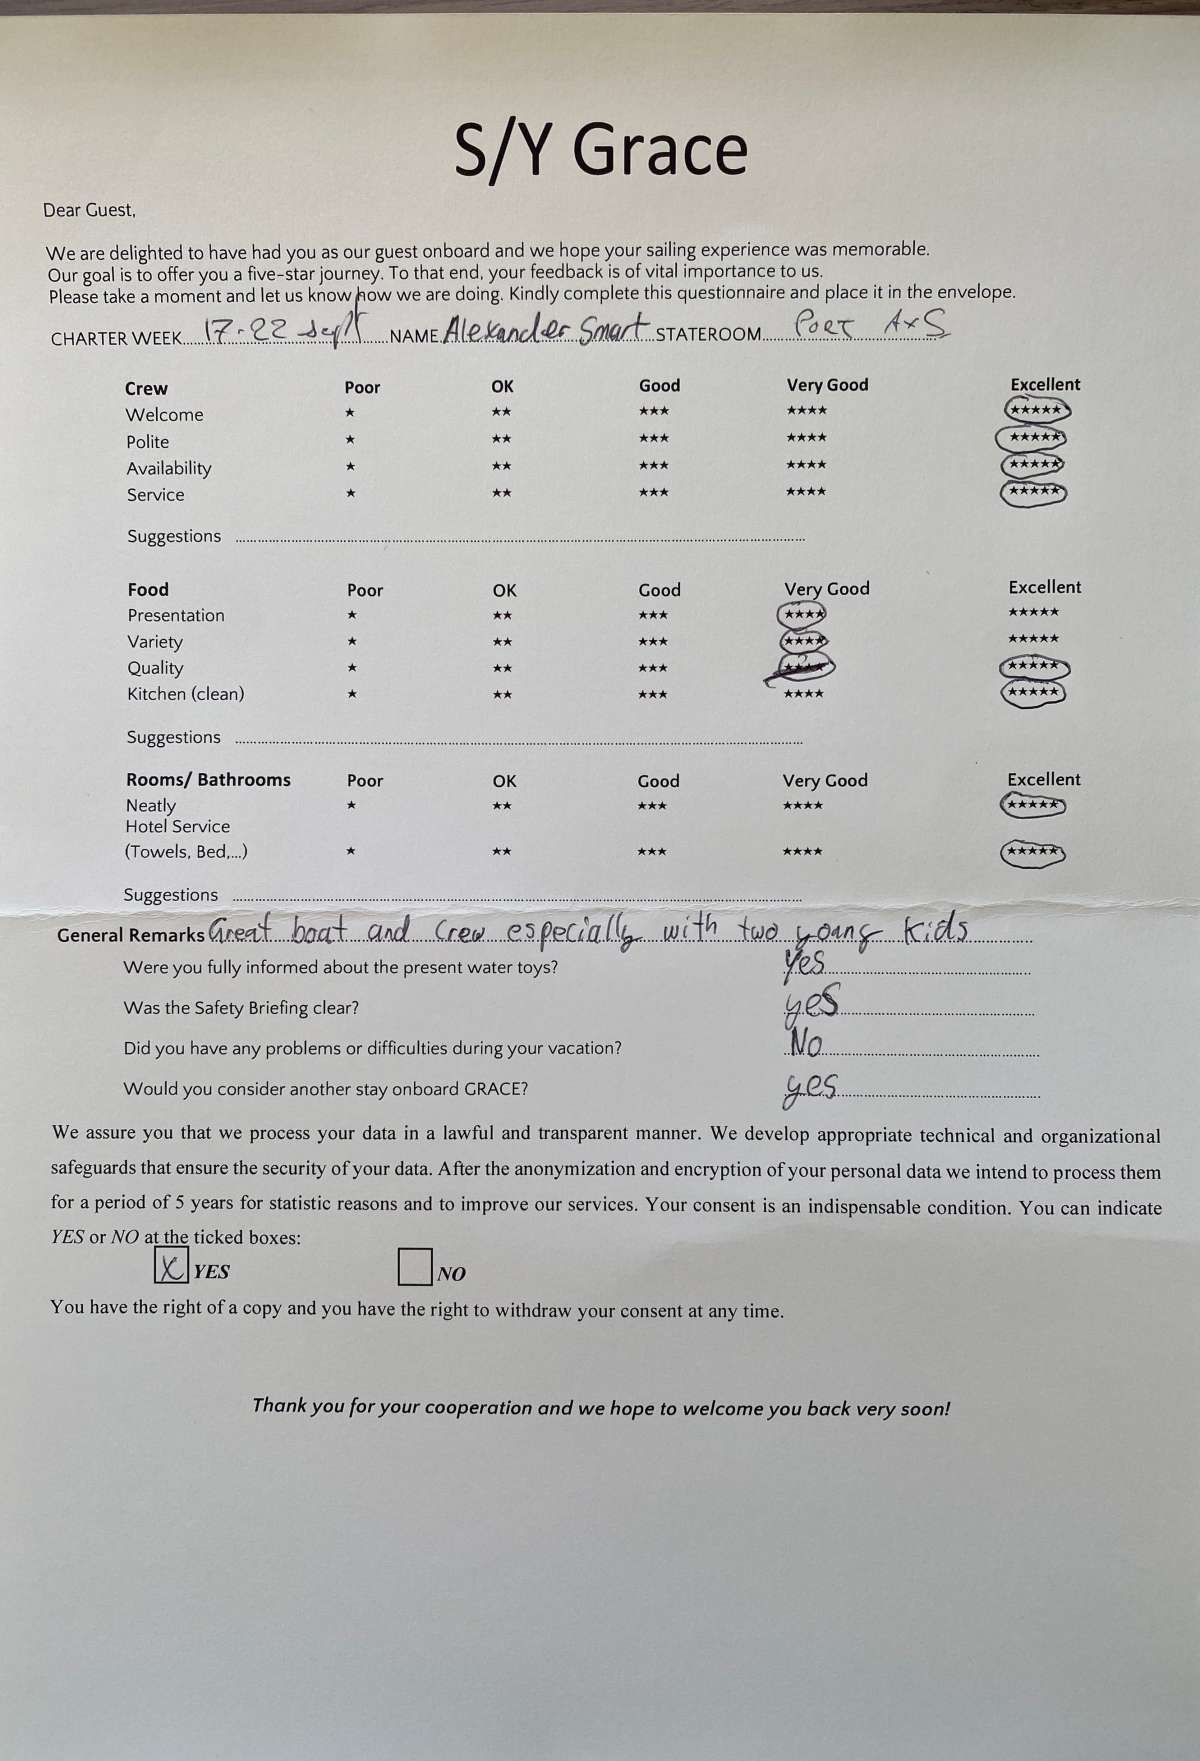 S/Y Grace
Dear Guest,
We are delighted to have had you as our guest onboard and we hope your sailing experience was memorable.
Our goal is to offer you a five-star journey. To that end, your feedback is of vital importance to us.
Please take a moment and let us know how we are doing. Kindly complete this questionnaire and place it in the envelope.
CHARTER WEEK 17-22 Sept NAME Alexander Smart STATEROOM PORT AxS
Crew Poor OK Good Very Good Excellent
Welcome ★ ★★ ★★★ ★★★★ ★★★★★
Polite ★ ★★ ★★★ ★★★★ ★★★★★
Availability ★ ★★ ★★★ ★★★★ ★★★★★
Service ★ ★★ ★★★ ★★★★ ★★★★★
Suggestions
Food Poor OK Good Very Good Excellent
Presentation ★ ★★ ★★★ ★★★★ ★★★★★
Variety ★ ★★ ★★★ ★★★★ ★★★★★
Quality ★ ★★ ★★★ ★★★★ ★★★★★
Kitchen (clean) ★ ★★ ★★★ ★★★★ ★★★★★
Suggestions
Rooms/ Bathrooms Poor OK Good Very Good Excellent
Neatly ★ ★★ ★★★ ★★★★ ★★★★★
Hotel Service
(Towels, Bed,...) ★ ★★ ★★★ ★★★★ ★★★★★
Suggestions
General Remarks Great boat and crew especially with two young kids
Were you fully informed about the present water toys? Yes
Was the Safety Briefing clear? yes
Did you have any problems or difficulties during your vacation? No
Would you consider another stay onboard GRACE? yes
We assure you that we process your data in a lawful and transparent manner. We develop appropriate technical and organizational
safeguards that ensure the security of your data. After the anonymization and encryption of your personal data we intend to process them
for a period of 5 years for statistic reasons and to improve our services. Your consent is an indispensable condition. You can indicate
YES or NO at the ticked boxes:
X YES NO
You have the right of a copy and you have the right to withdraw your consent at any time.
Thank you for your cooperation and we hope to welcome you back very soon!